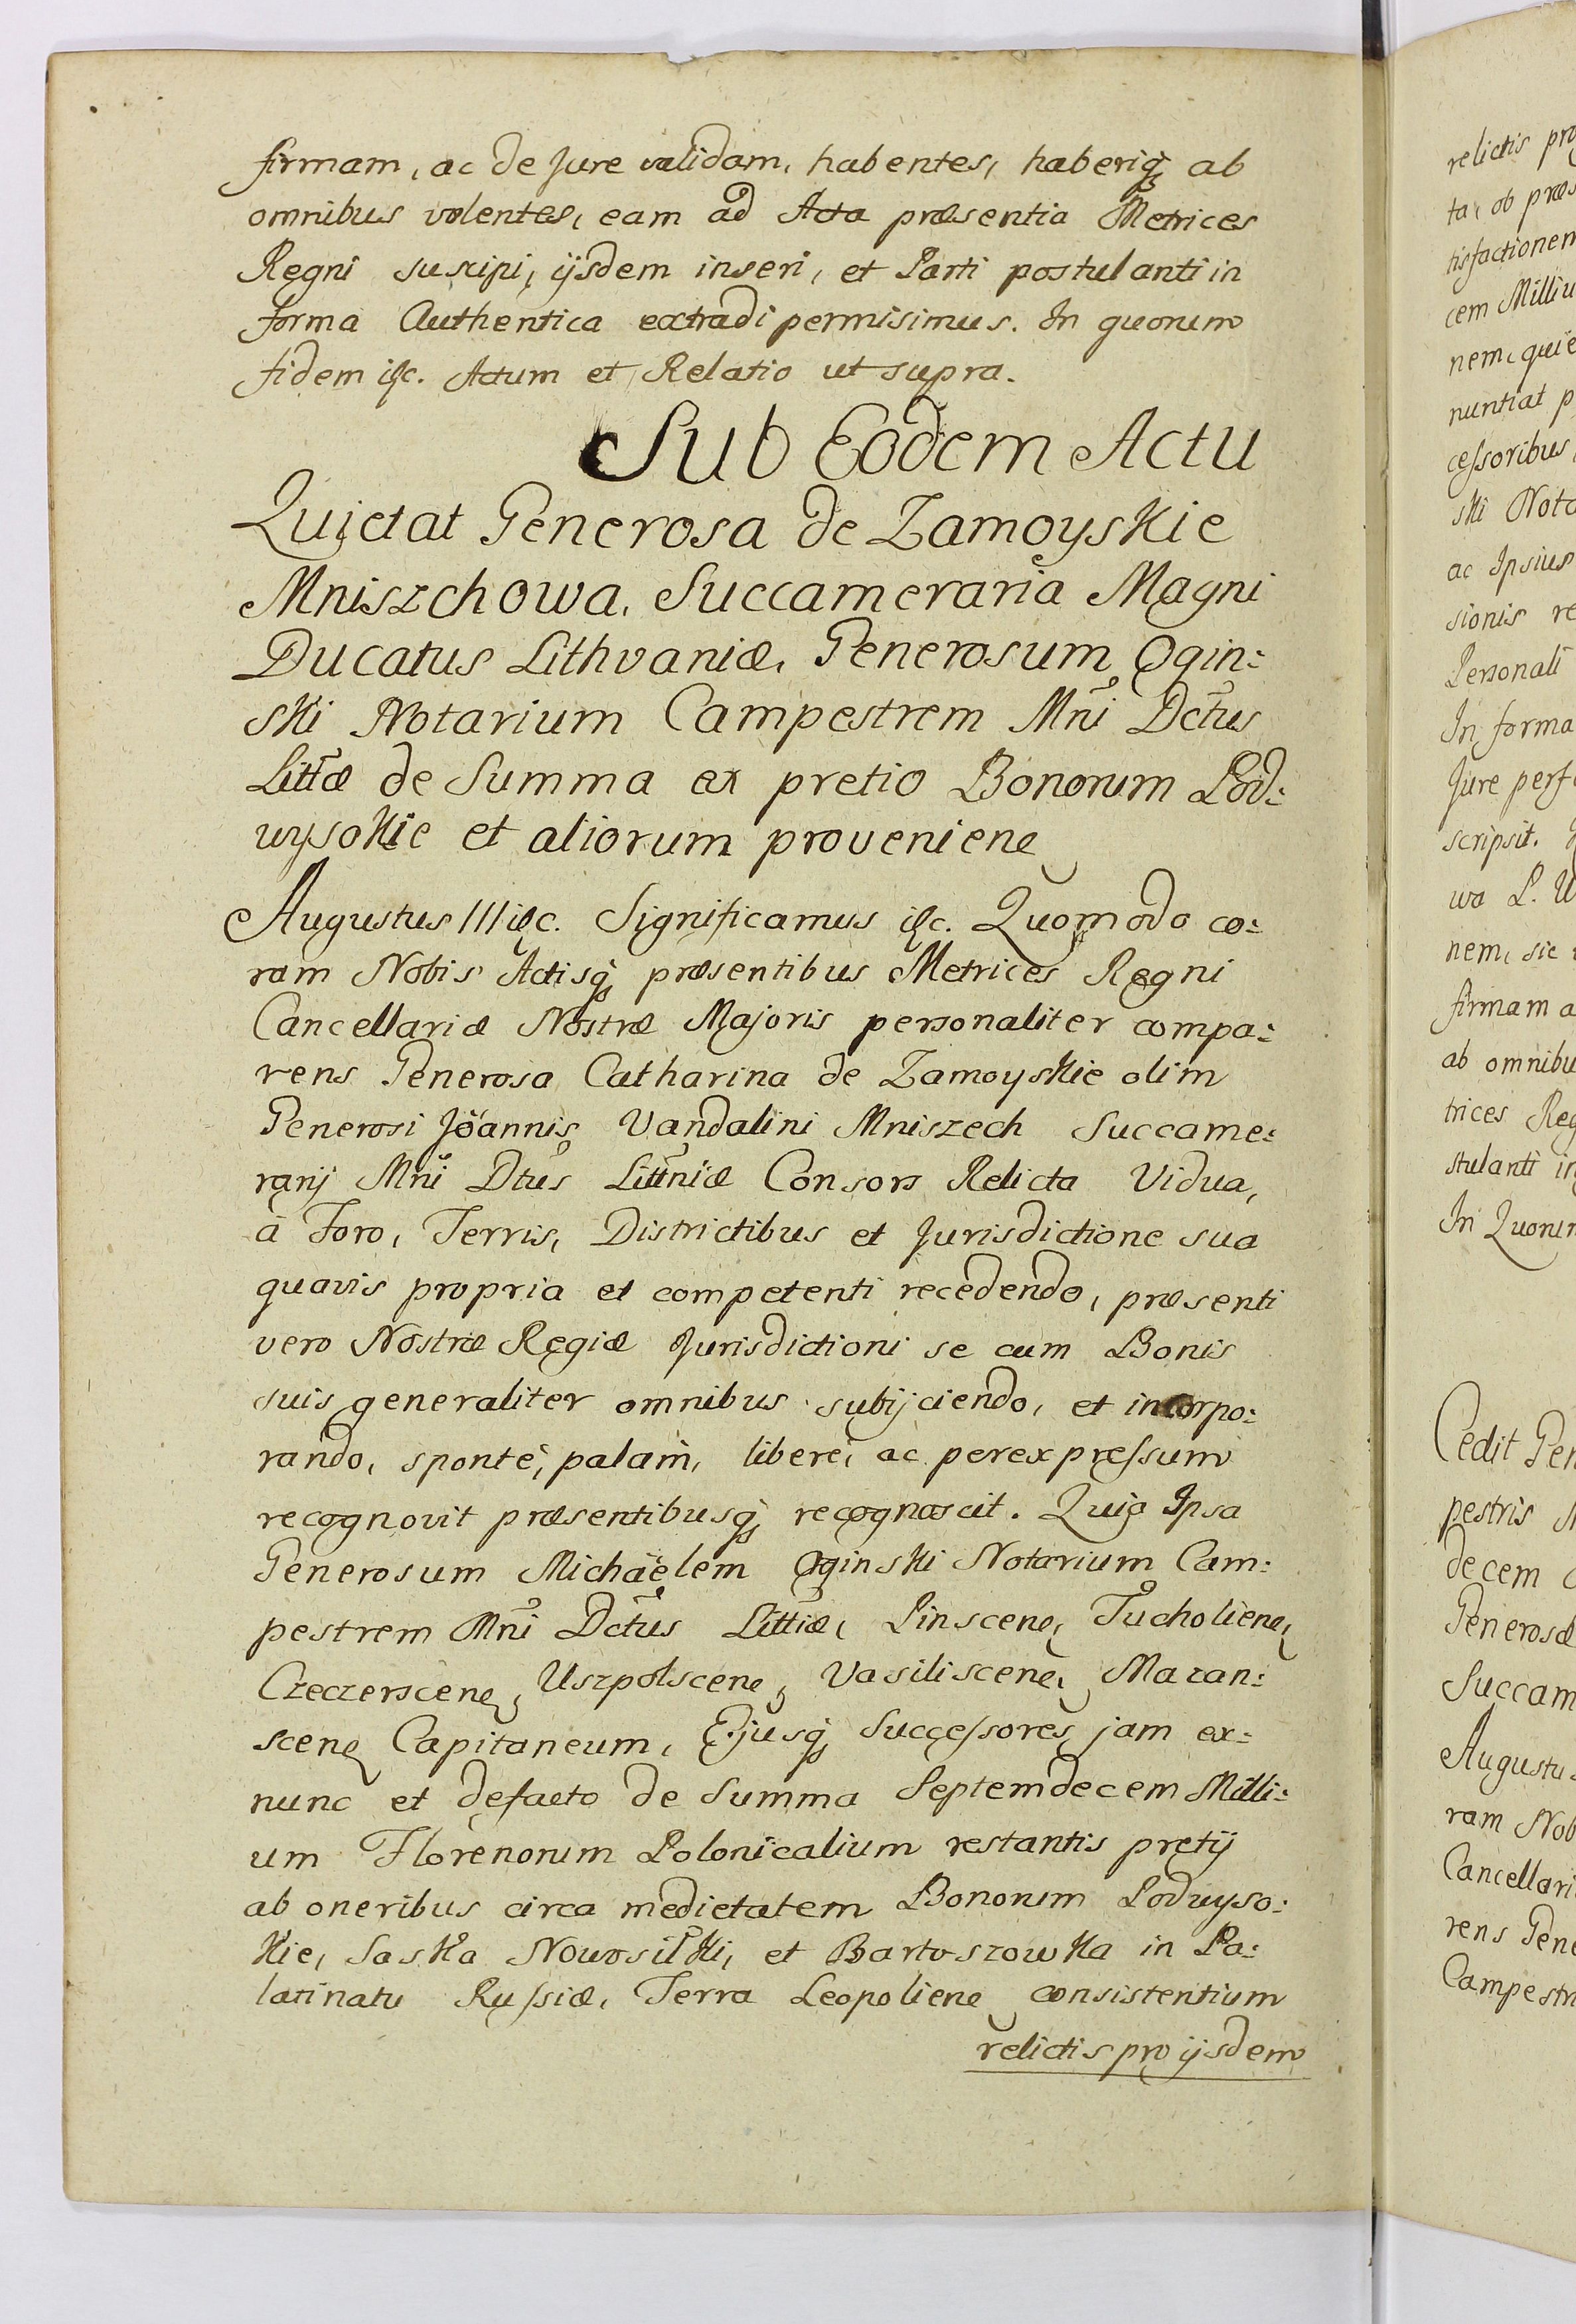 firmam, ac de Jure validam, habentes, haberiq; ab
omnibus volentes, eam ad Acta præsentia Metrices
Regni suscipi, ijsdem inseri, et Parti postulanti in
forma Authentica extradi permisimus. In quorum
fidem &c. Actum et Relatio ut supra.
Sub Eodem Actu
Quietat Generosa de Zamoyskie
Mniszchowa, Succameraria Magni
Ducatus Lithvaniæ, Generosum Ogin:
ski Notarium Campestrem Mni Dctus
Littæ de Summa ex pretio Bonorum Pod:
wysokie et aliorum provenien̄
Augustus III &c. Significamus &c. Quomodo co:
ram Nobis Actisq; præsentibus Metrices Regni
Cancellariæ Nostræ Majoris personaliter compa:
rens Generosa Catharina de Zamoyskie olim
Generosi Joannis Vandalini Mniszech Succame:
rarij Mni Dtus Littniæ Consors Relicta Vidua,
à Foro, Terris, Districtibus et Jurisdictione sua
quavis propria et competenti recedendo, præsenti
vero Nostræ Regiæ Jurisdictioni se cum Bonis
suis generaliter omnibus subijciendo, et incorpo:
rando, sponte, palam, libere, ac per expressum
recognovit præsentibusq; recognoscit. Quia Ipsa
Generosum Michaëlem Oginski Notarium Cam:
pestrem Mni Dctus Littiæ, Pinscen, Tucholien,
Czeczerscen, Uszpolscen, Vasiliscen, Mazan:
scen Capitaneum, Ejusq; Successores jam ex:
nunc et defacto de Summa Septemdecem Milli:
um Florenorum Polonicalium restantis pretij
ab oneribus circa medietatem Bonorum Podwyso:
kie, Saska Nowosiłki, et Bartoszowka in Pa:
latinatu Russiæ, Terra Leopolien consistentium
relictis pro ijsdem
relictis pro
ta, ob præs
tisfactionem
cem Milliu
nem, quie
nuntiat p
cessoribus,
ski Nota
ac Ipsius
sionis re
Personali
In forma
Jure perf
scripsit.
wa L.
nem, sic
firmam a
ab omnibu
trices Reg
stulanti in
In Quorum
Cedit Gen
pestris
decem
Generosæ
Succam
Augustu
ram Nob
Cancellari
rens Gene
Campestr